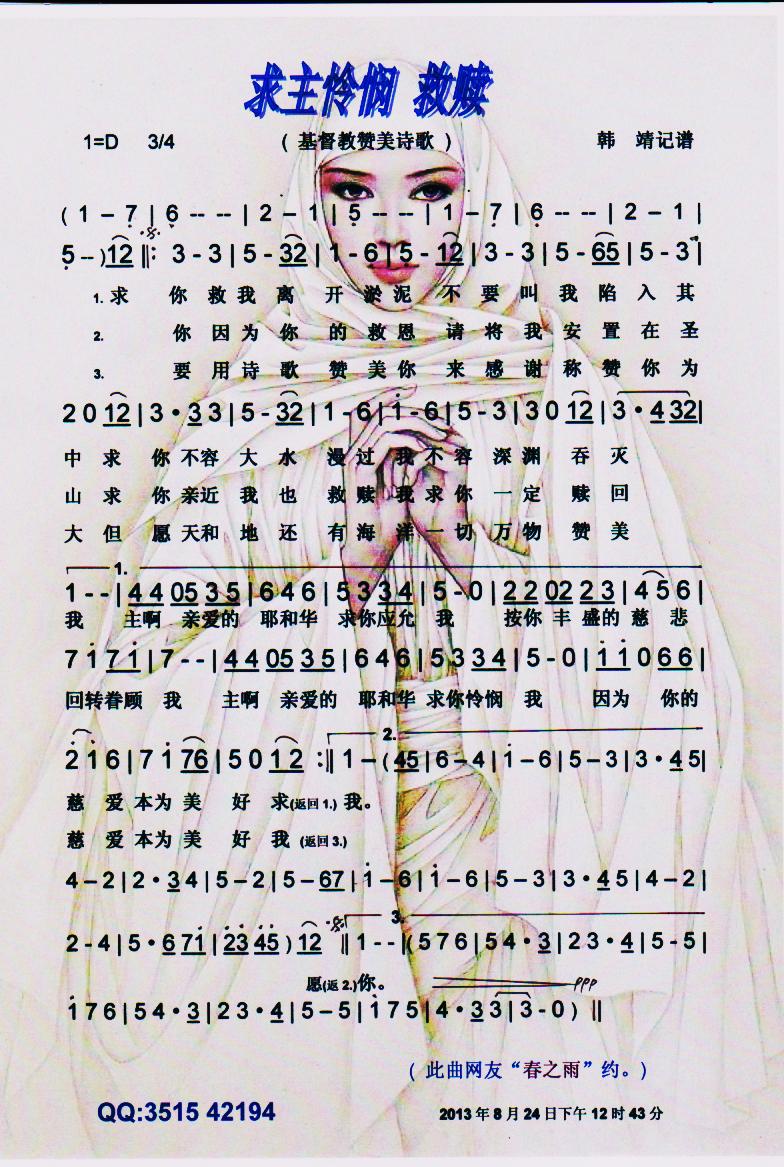 求主怜悯 救赎
1=D 3/4 ( 基督教赞美诗歌 ) 韩 靖记谱
( 1 – 7 | 6 -- -- | 2 – 1 | 5 -- -- | 1 – 7 | 6 -- -- | 2 – 1 |
5 -- ) 12 ‖: 3 - 3 | 5 - 32 | 1 - 6 | 5 - 12 | 3 - 3 | 5 - 65 | 5 - 3 |
1. 求 你 救 我 离 开 淤 泥 不 要 叫 我 陷 入 其
2. 你 因 为 你 的 救 恩 请 将 我 安 置 在 圣
3. 要 用 诗 歌 赞 美 你 来 感 谢 称 赞 你 为
2 0 12 | 3 • 3 3 | 5 - 32 | 1 - 6 | 1 - 6 | 5 - 3 | 3 0 12 | 3 • 4 32 |
中 求 你 不容 大 水 漫 过 我 不 容 深 渊 吞 灭
山 求 你 亲近 我 也 救 赎 我 求 你 一 定 赎 回
大 但 愿 天和 地 还 有 海 洋 一 切 万 物 赞 美
1.
1 - - | 4 4 05 3 5 | 6 4 6 | 5 3 3 4 | 5 - 0 | 2 2 02 2 3 | 4 5 6 |
我 主啊 亲爱的 耶和华 求你应允 我 按你 丰 盛的 慈 悲
7 1 7 1 | 7 - - | 4 4 05 3 5 | 6 4 6 | 5 3 3 4 | 5 - 0 | 1 1 0 6 6 |
回转眷顾 我 主啊 亲爱的 耶和华 求你怜悯 我 因为 你的
2.
2 1 6 | 7 1 76 | 5 0 1 2 :‖ 1 – ( 45 | 6 – 4 | 1 – 6 | 5 – 3 | 3 • 4 5 |
慈 爱 本为 美 好 求(返回 1.) 我。
慈 爱 本为 美 好 我 (返回 3.)
4 – 2 | 2 • 3 4 | 5 – 2 | 5 – 67 | 1 – 6 | 1 – 6 | 5 – 3 | 3 • 4 5 | 4 – 2 |
3.
2 - 4 | 5 • 6 71 | 23 45 ) 12 ‖ 1 - - | ( 5 7 6 | 5 4 • 3 | 2 3 • 4 | 5 - 5 |
愿(返 2.) 你。 ppp
1 7 6 | 5 4 • 3 | 2 3 • 4 | 5 – 5 | 1 7 5 | 4 • 3 3 | 3 - 0 ) ‖
( 此曲网友“春之雨”约。)
QQ:3515 42194 2013 年 8 月 24 日下午 12 时 43 分